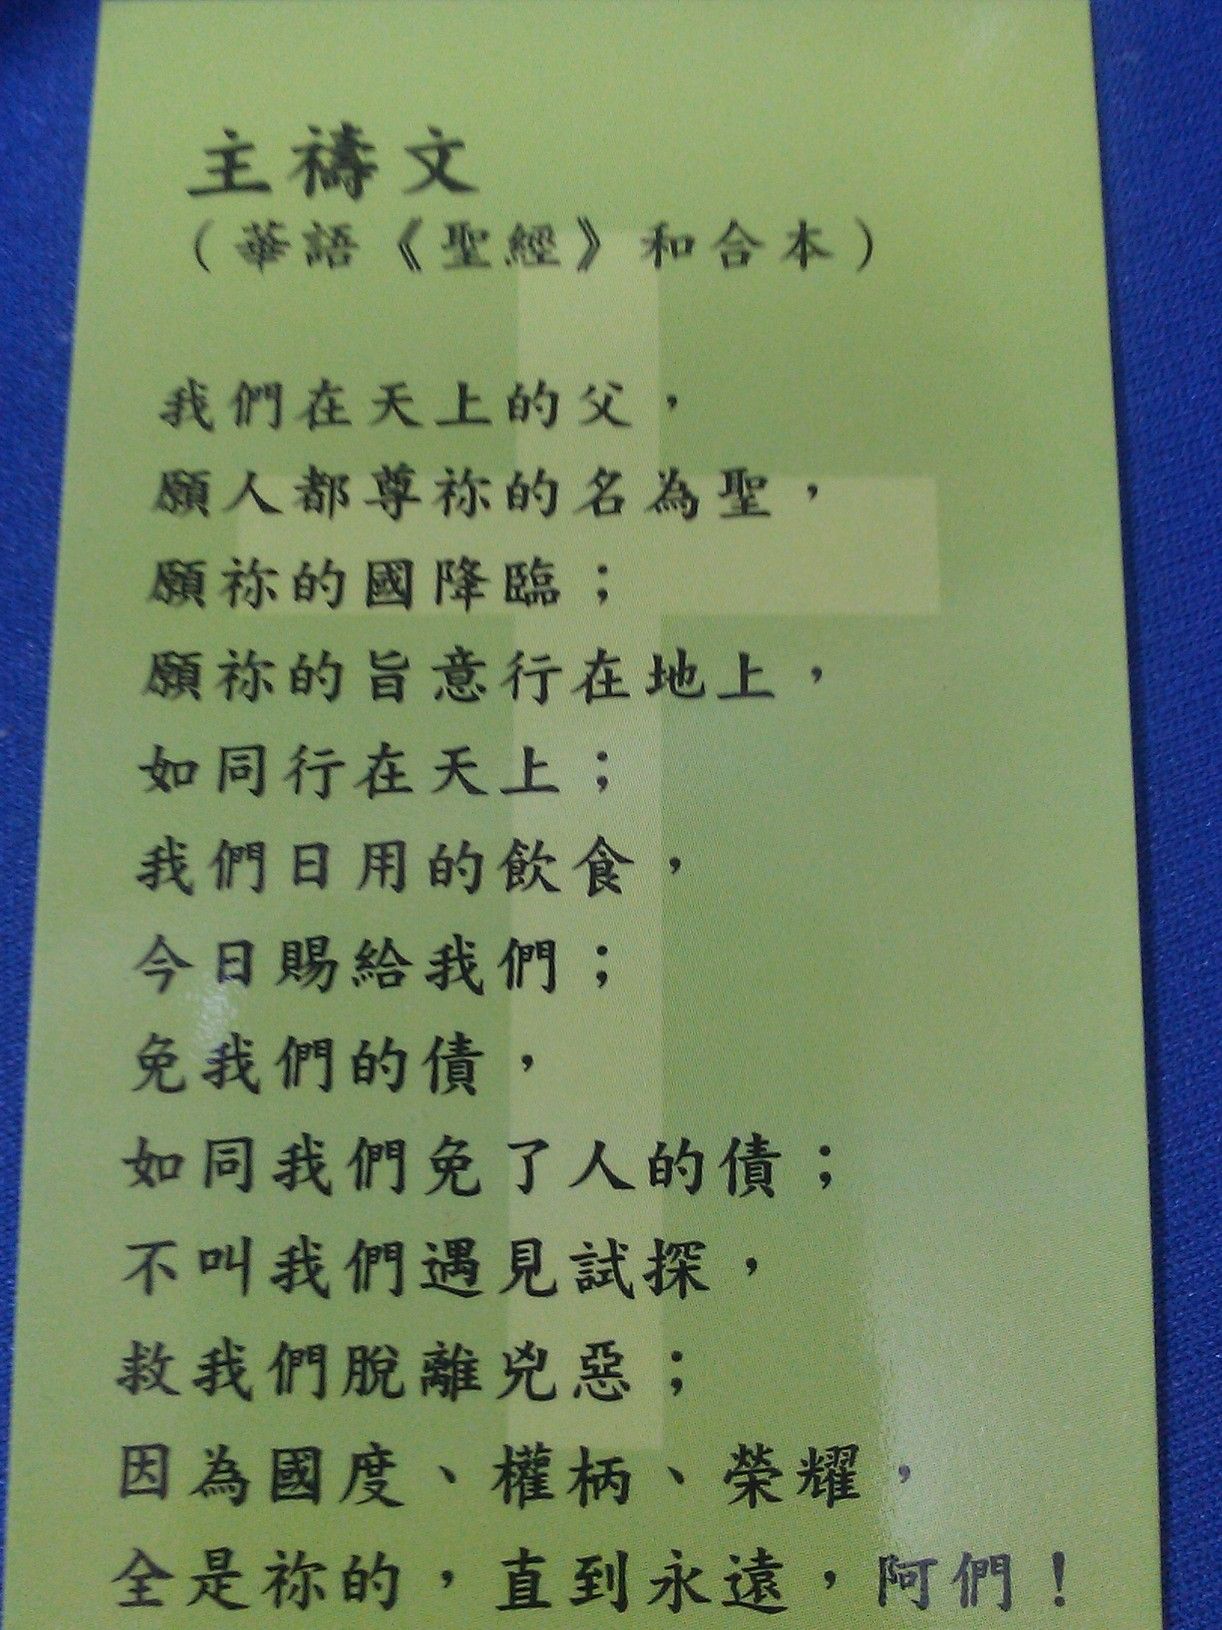 主禱文
（華語《聖經》和合本）
我們在天上的父，
願人都尊祢的名為聖，
願祢的國降臨；
願祢的旨意行在地上，
如同行在天上；
我們日用的飲食，
今日賜給我們；
免我們的債，
如同我們免了人的債；
不叫我們遇見試探，
救我們脫離兇惡；
因為國度、權柄、榮耀，
全是祢的，直到永遠，阿們！